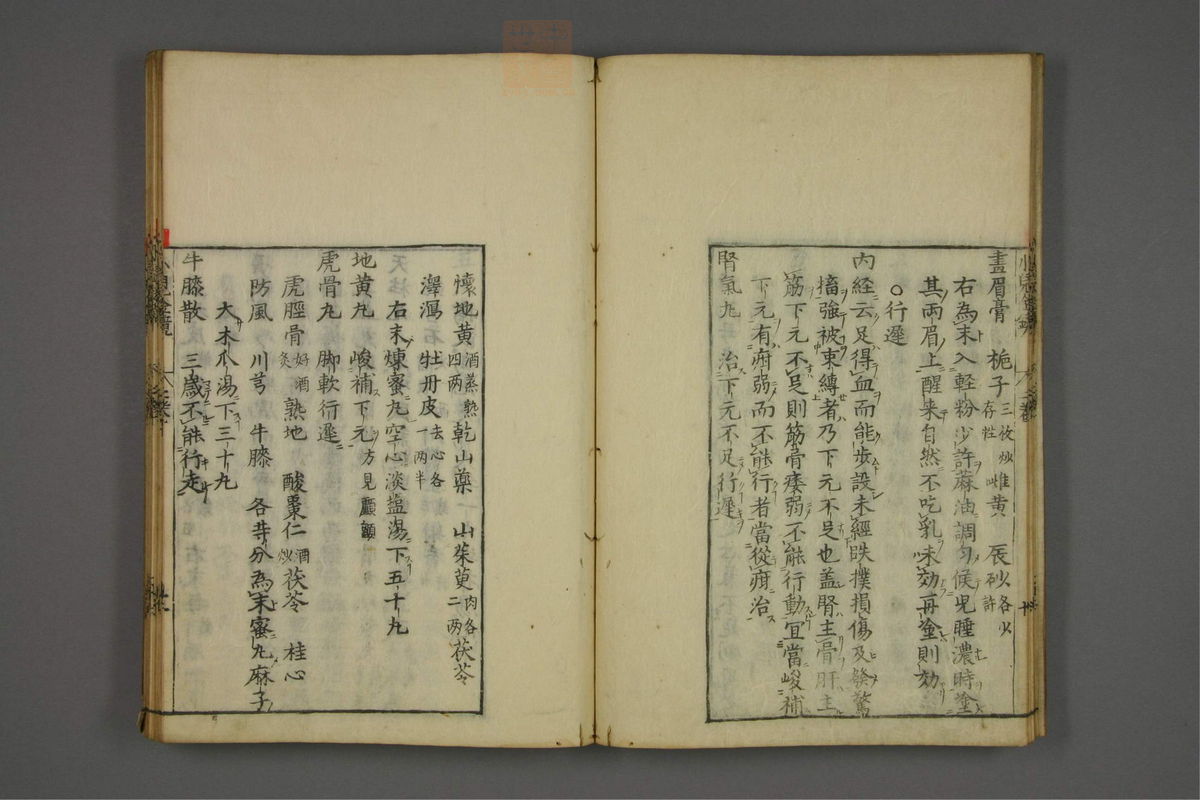 畫眉膏 梔子三枚炒存性 雄黄 辰砂各少許
右為末入軽粉少許蔴油調匀候児睡濃時塗
其兩眉上醒来自然不吃乳未効再塗則効
○行遲
内経云足得血而能歩設未經跌撲損傷及發驚
搐強被束縛者乃下元不足也盖腎主骨肝主
筋下元不足則筋骨痿弱不能行動宜當峻補
下元有疳弱而不能行者當從疳治
腎氣丸 治下元不足行遲
懷地黄酒蒸熟四两 乾山薬 山茱萸肉各二两 茯苓
澤瀉 牡丹皮去心各一两半
右末煉蜜丸空心淡塩湯下五十丸
地黄丸 峻補下元方見顱顖
虎骨丸 脚軟行遲
虎脛骨好酒炙 熟地 酸棗仁酒炒 茯苓 桂心
防風 川芎 牛膝 各等分為末蜜丸麻子
大木瓜湯下三十丸
牛膝散 三歳不能行走